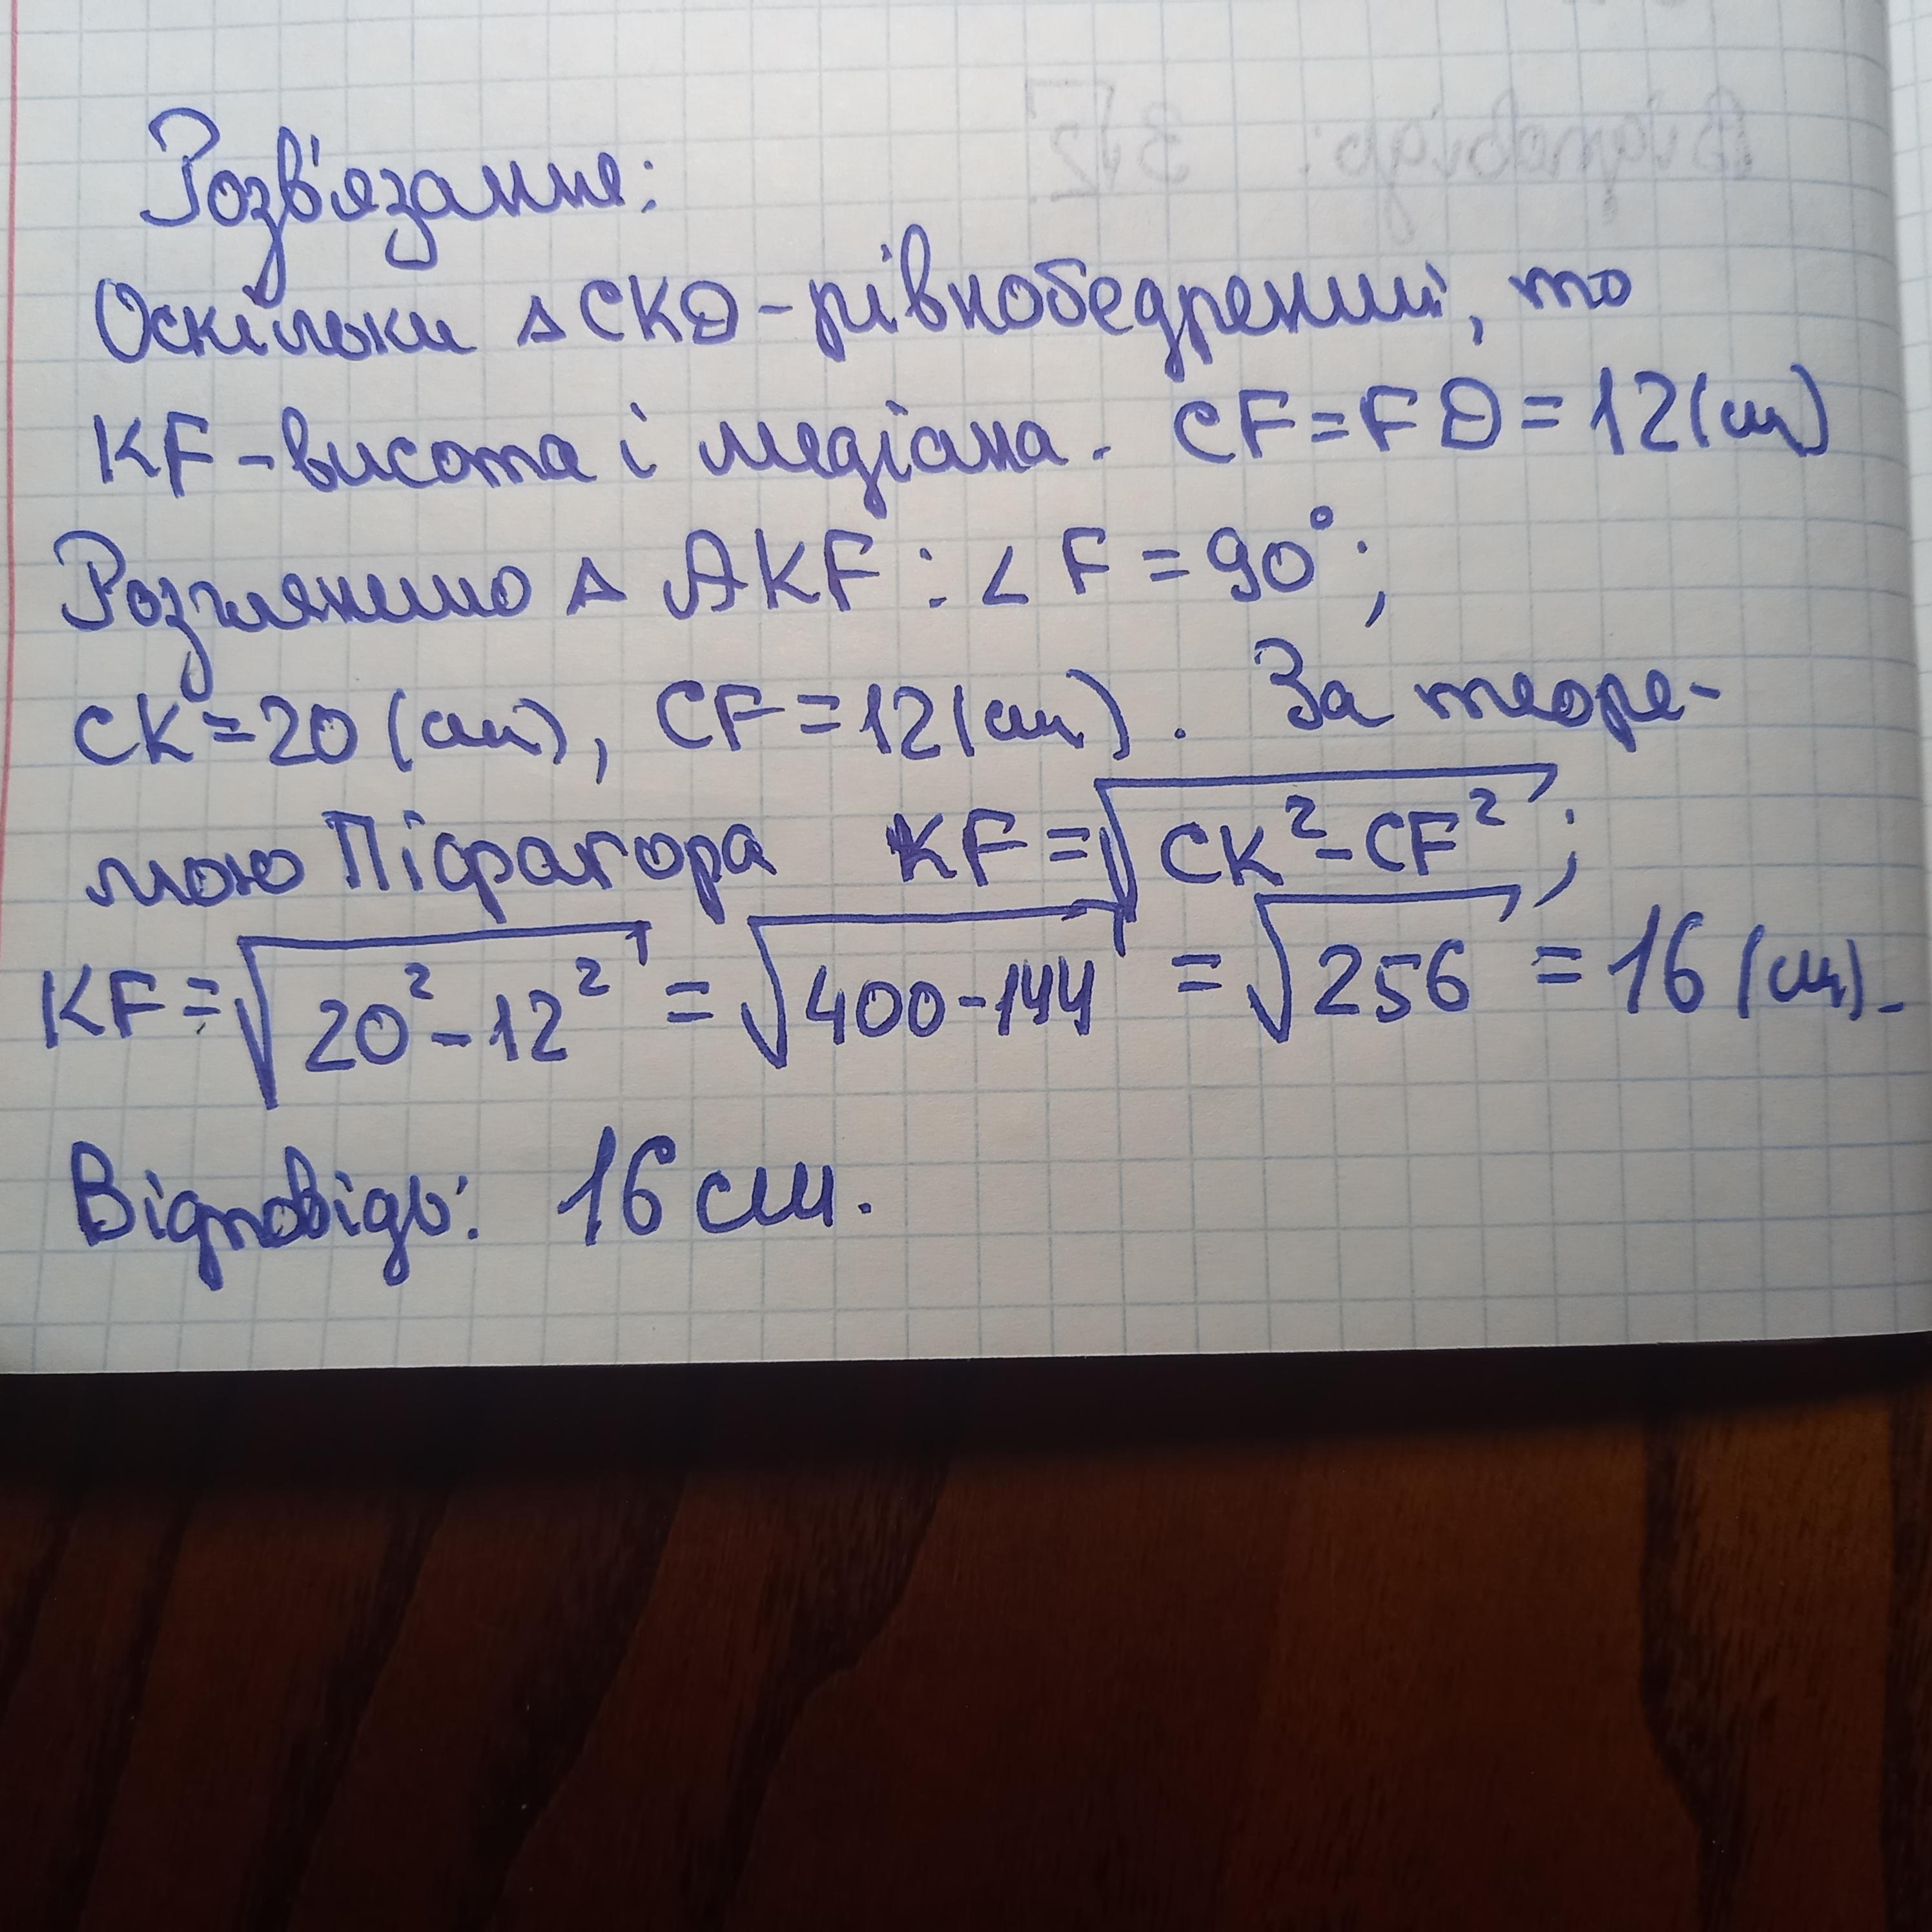 Розв'язання:
Оскільки △ CKD - рівнобедрений, то
KF - висота і медіана. CF = FD = 12 (см)
Розглянемо △ AKF : ∠ F = 90°;
CK = 20 (см), CF = 12 (см). За теоре-
мою Піфагора KF = √CK² - CF²;
KF = √20² - 12² = √400 - 144 = √256 = 16 (см).
Відповідь: 16 см.